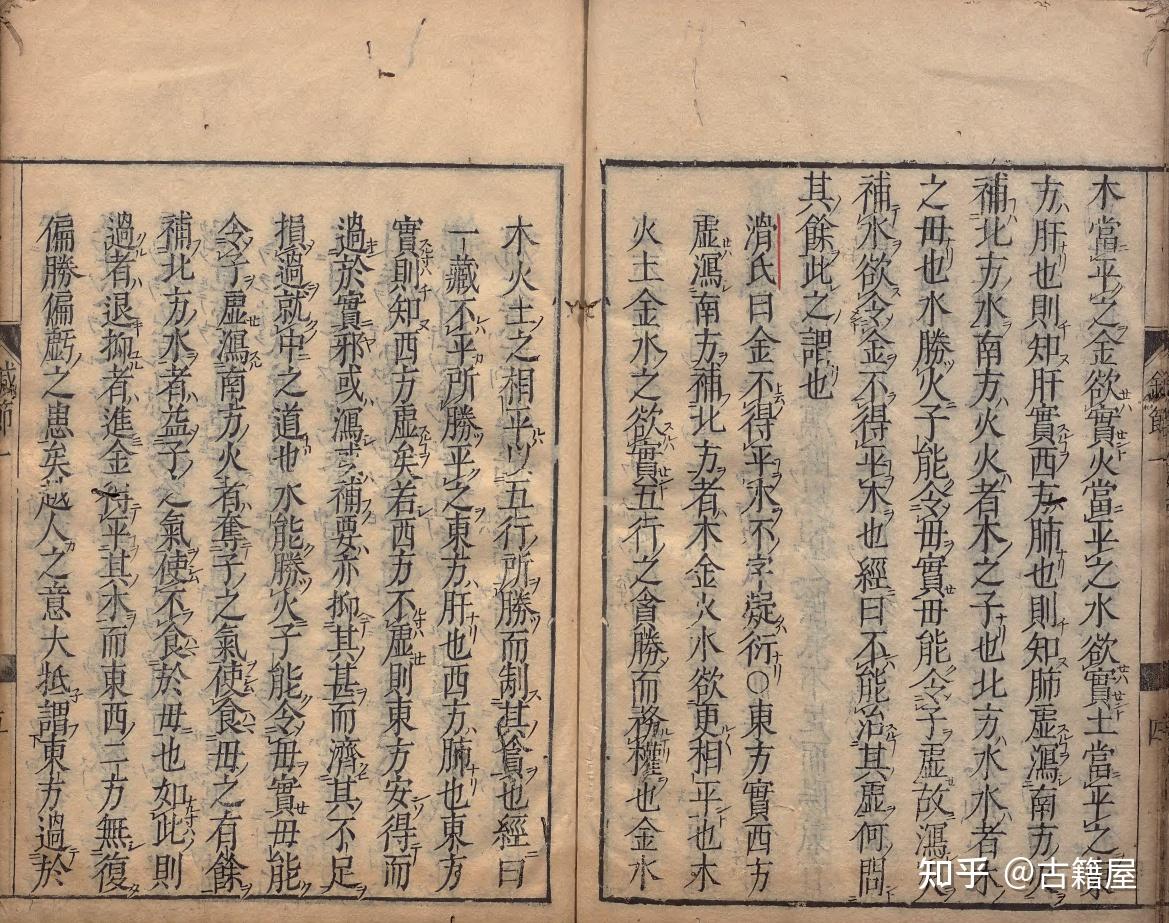 木當平之金欲實火當平之水欲實土當平之東
方肝也則知肝實西方肺也則知肺虛瀉南方火
補北方水南方火火者木之子也北方水水者木
之母也水勝火子能令母實母能令子虛故瀉火
補水欲令金不得平木也經曰不能治其虛何問
其餘此之謂也
滑氏曰金不得平木不字疑衍○東方實西方
虛瀉南方補北方者木金火水欲更相平也木
火土金水之欲實五行之貪勝而務權也金水
木火土之相平以五行所勝而制其貪也經曰
一藏不平所勝平之東方肝也西方肺也東方
實則知西方虛矣若西方不虛則東方安得而
過於實邪或瀉或補要亦抑其甚而濟其不足
損過就中之道也水能勝火子能令母實母能
令子虛瀉南方火者奪子之氣使食母之有餘
補北方水者益子之氣使不食於母也如此則
過者退抑者進金得平其木而東西二方無復
偏勝偏虧之患矣越人之意大抵謂東方過於
知乎 @古籍屋